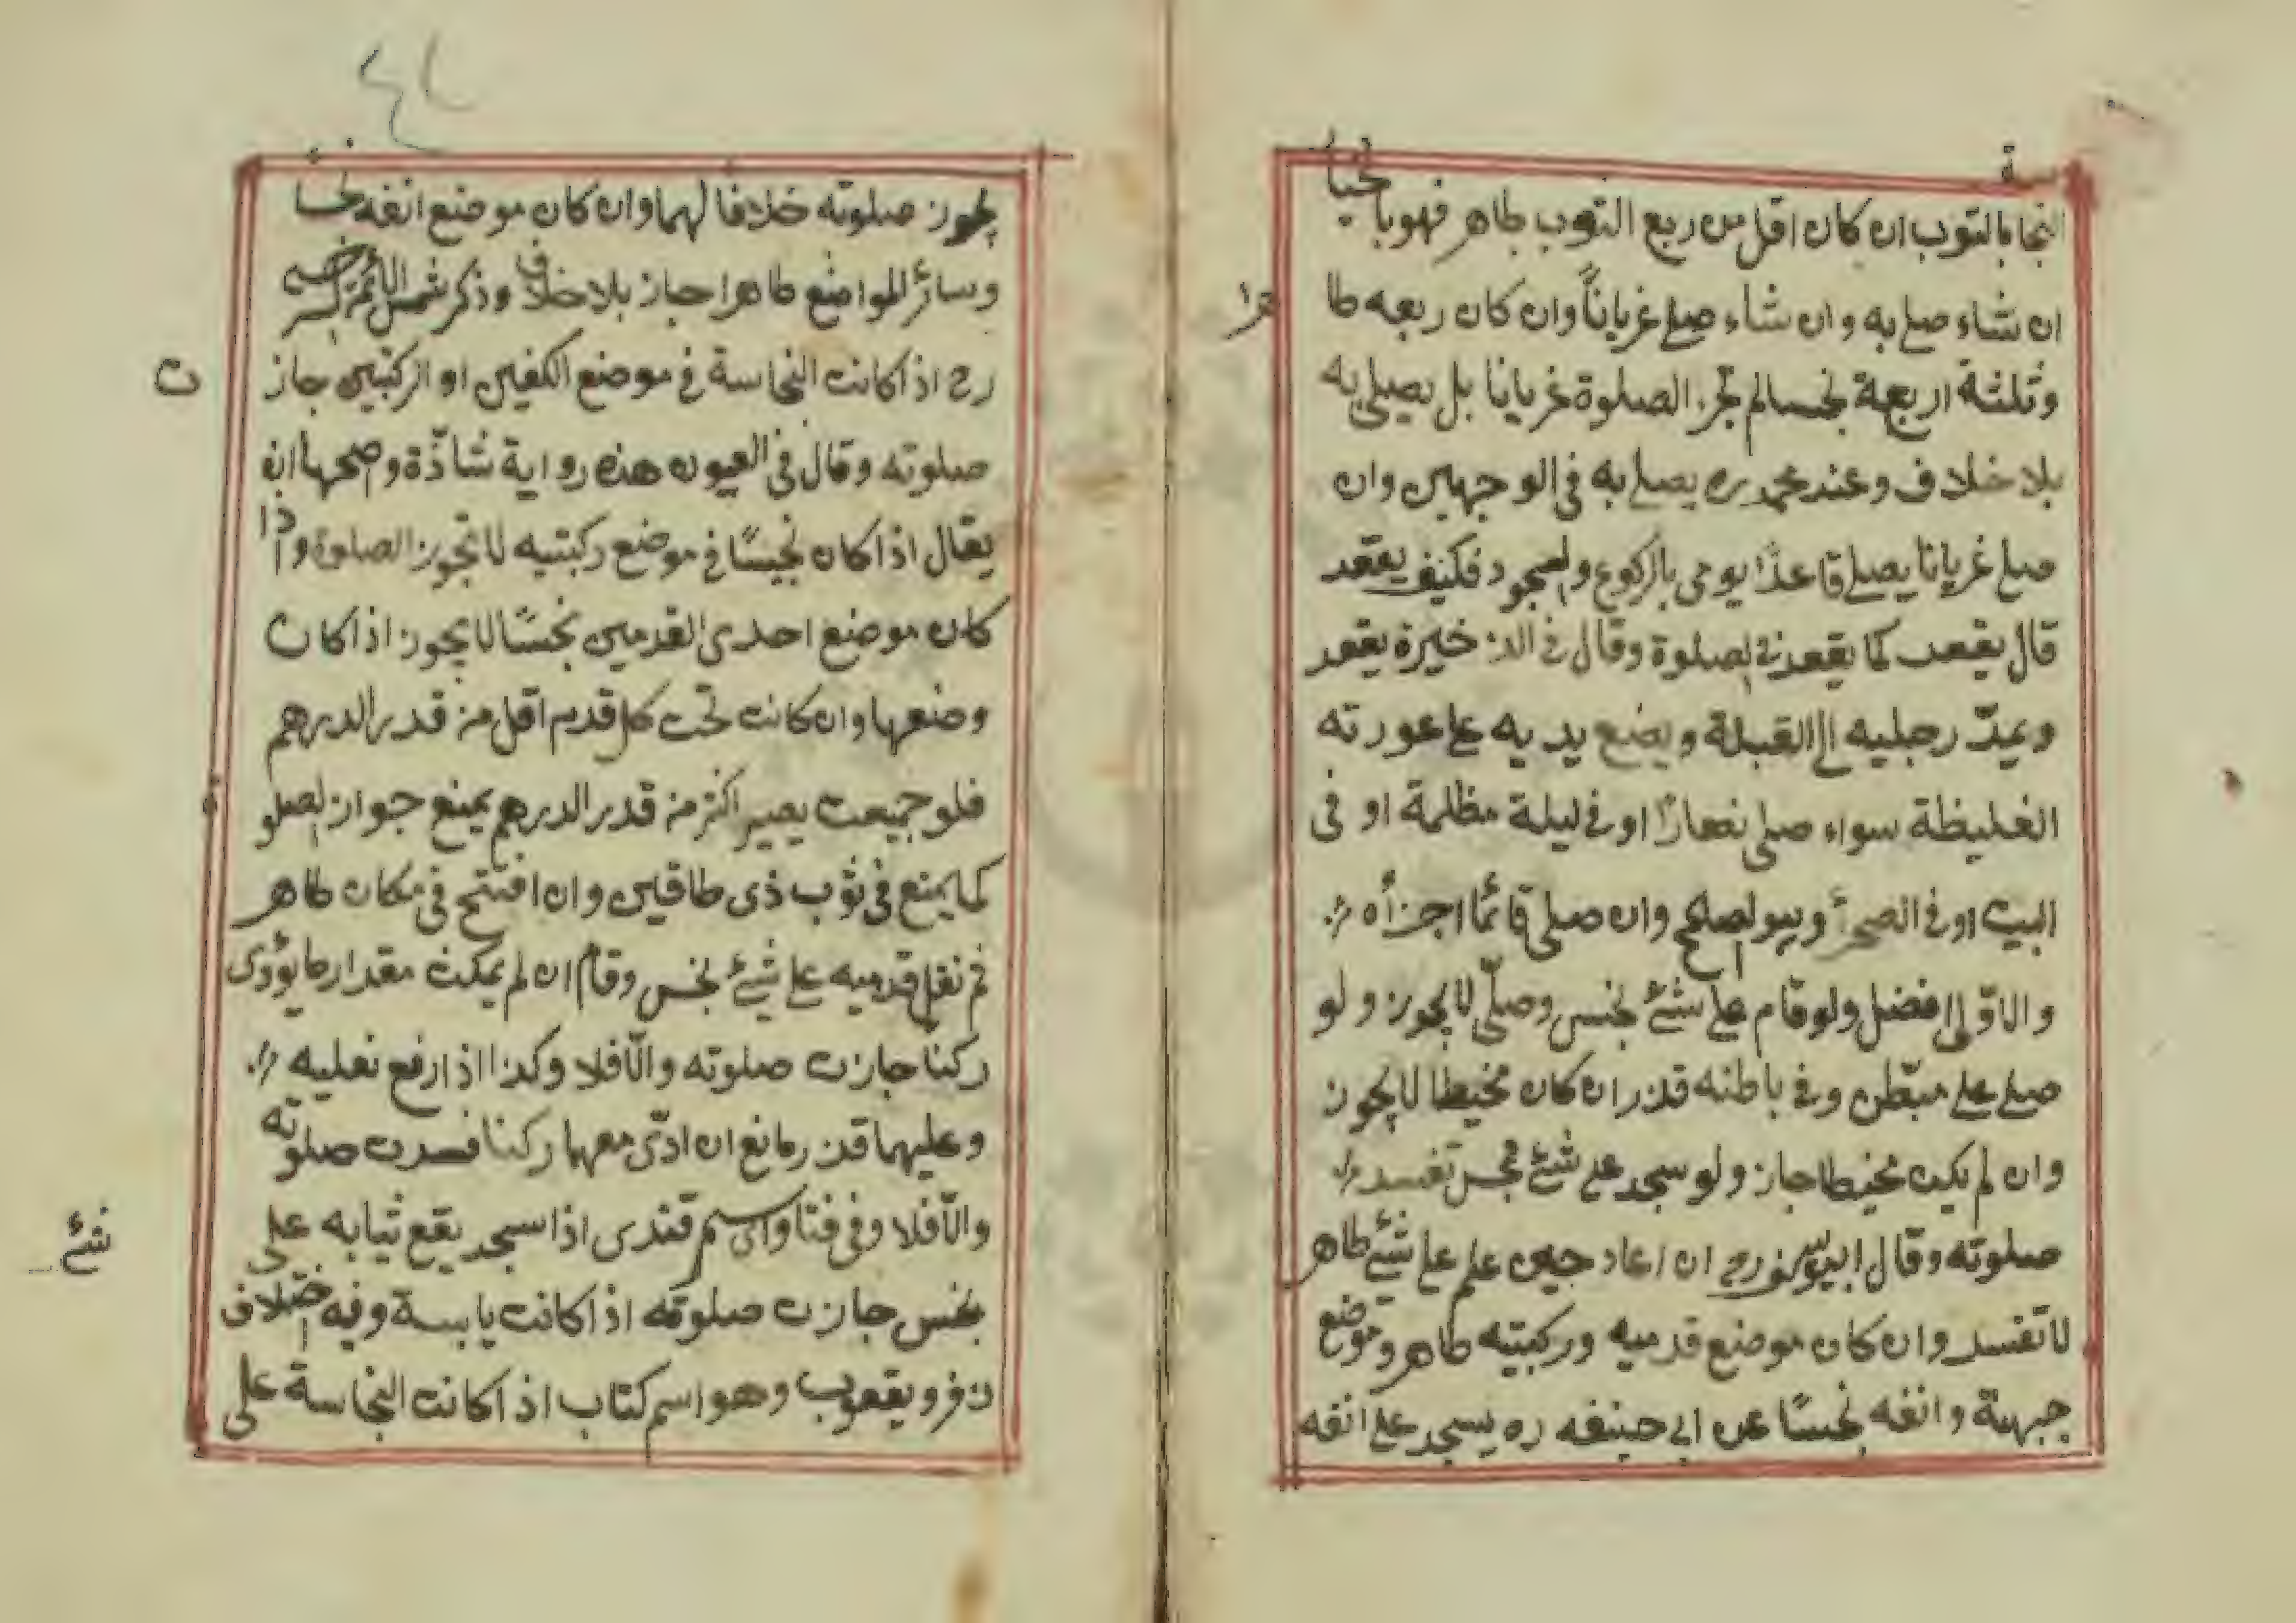 النجاسة بالثوب ان كان اقل من ربع الثوب طاهر فهو بالخيار
ان شاء صلى به وان شاء صلى غريانًا وان كان ربعه طاهرا
وثلثة اربعة نجسا لم تجز الصلوة غريانا بل يصلى به
بلا خلاف وعند محمد ره يصلى به فى الوجهين وان
صلى غريانا يصلى قاعدًا يومى بالركوع والسجود فكيف يقعد
قال يقعد كما يقعد فى الصلوة وقال فى الذخيرة يقعد
ويمدّ رجليه الى القبلة ويضع يديه على عورته
الغليظة سواء صلى نهارًا او فى ليلة مظلمة او فى
البيت او فى الصحرأ وهو الصحيح وان صلى قائمًا اجزأه
والاوّلى افضل ولو قام على شئ نجس وصلّى لا يجوز ولو
صلى على مبطّن وفى باطنه قذر ان كان مخيطا لا يجوز
وان لم يكن مخيطا جاز ولو سجد على شئ نجس تفسد
صلوته وقال ابو يوسف رح ان اعاد حين علم على شئ طاهر
لا تفسد وان كان موضع قدميه وركبتيه طاهر وموضع
جبهته وانفه نجسًا عن ابى حنيفه ره يسجد على انفه
٤٤
يجوز صلوته خلافا لهما وان كان موضع انفه نجسا
وسائر المواضع طاهرا جاز بلا خلاف وذكر شمس الائمة السرخسى
رح اذا كانت النجاسة فى موضع الكفين او الركبتين جازت
صلوته وقال فى العيون هذه رواية شاذّة واصحها ان
يقال اذا كان نجيسًا فى موضع ركبتيه لا تجوز الصلوة واذا
كان موضع احدى القدمين نجسًا لا يجوز اذا كان
وضعها وان كانت تحت كل قدم اقل من قدر الدرهم
فلو جميعت يصير اكثر من قدر الدرهم يمنع جواز الصلوة
كما يمنع فى ثوب ذى طاقين وان افتتح فى مكان طاهر
ثم نقل قدميه على شئ نجس وقام ان لم يمكث مقدار ما يؤدى
ركنًا جازت صلوته والّا فلا وكذا اذا رفع نعليه
وعليهما قذر مانع ان ادّى معهما ركنا فسدت صلوته
والّا فلا وفى فتاوى سمرقندى اذا سجد يقع ثيابه على شئ
نجس جازت صلوته اذا كانت يابسة وفيه اختلاف
زفر ويقعوب وهو اسم كتاب اذا كانت النجاسة على